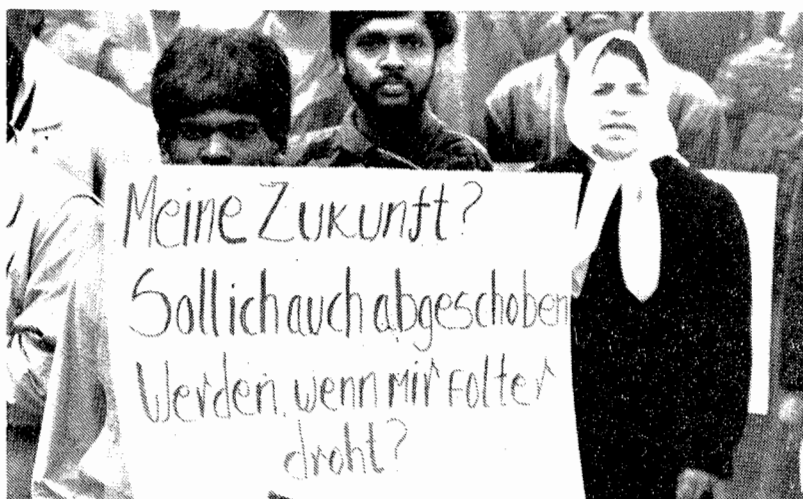 Meine Zukunft?
Soll ich auch abgeschoben
Werden, wenn mir Folter
droht?